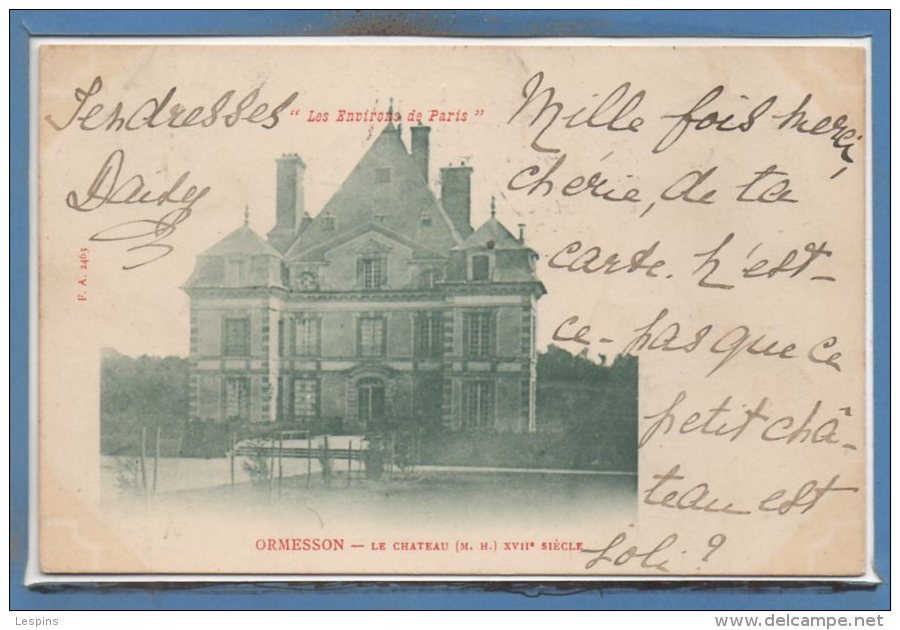 Tendresses
Daisy
" Les Environs de Paris "
Mille fois merci,
chérie, de ta
carte. N'est-
ce-pas que ce
petit châ-
teau est
joli ?
F. A. 2463
ORMESSON — LE CHATEAU (M. H.) XVIIe SIÈCLE
Lespins
www.delcampe.net